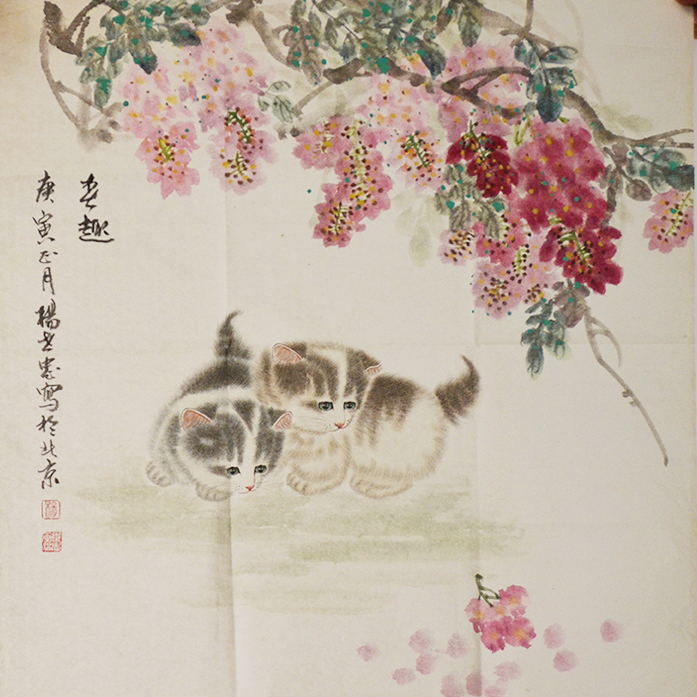 春趣
庚寅正月楊士忠寫於北京